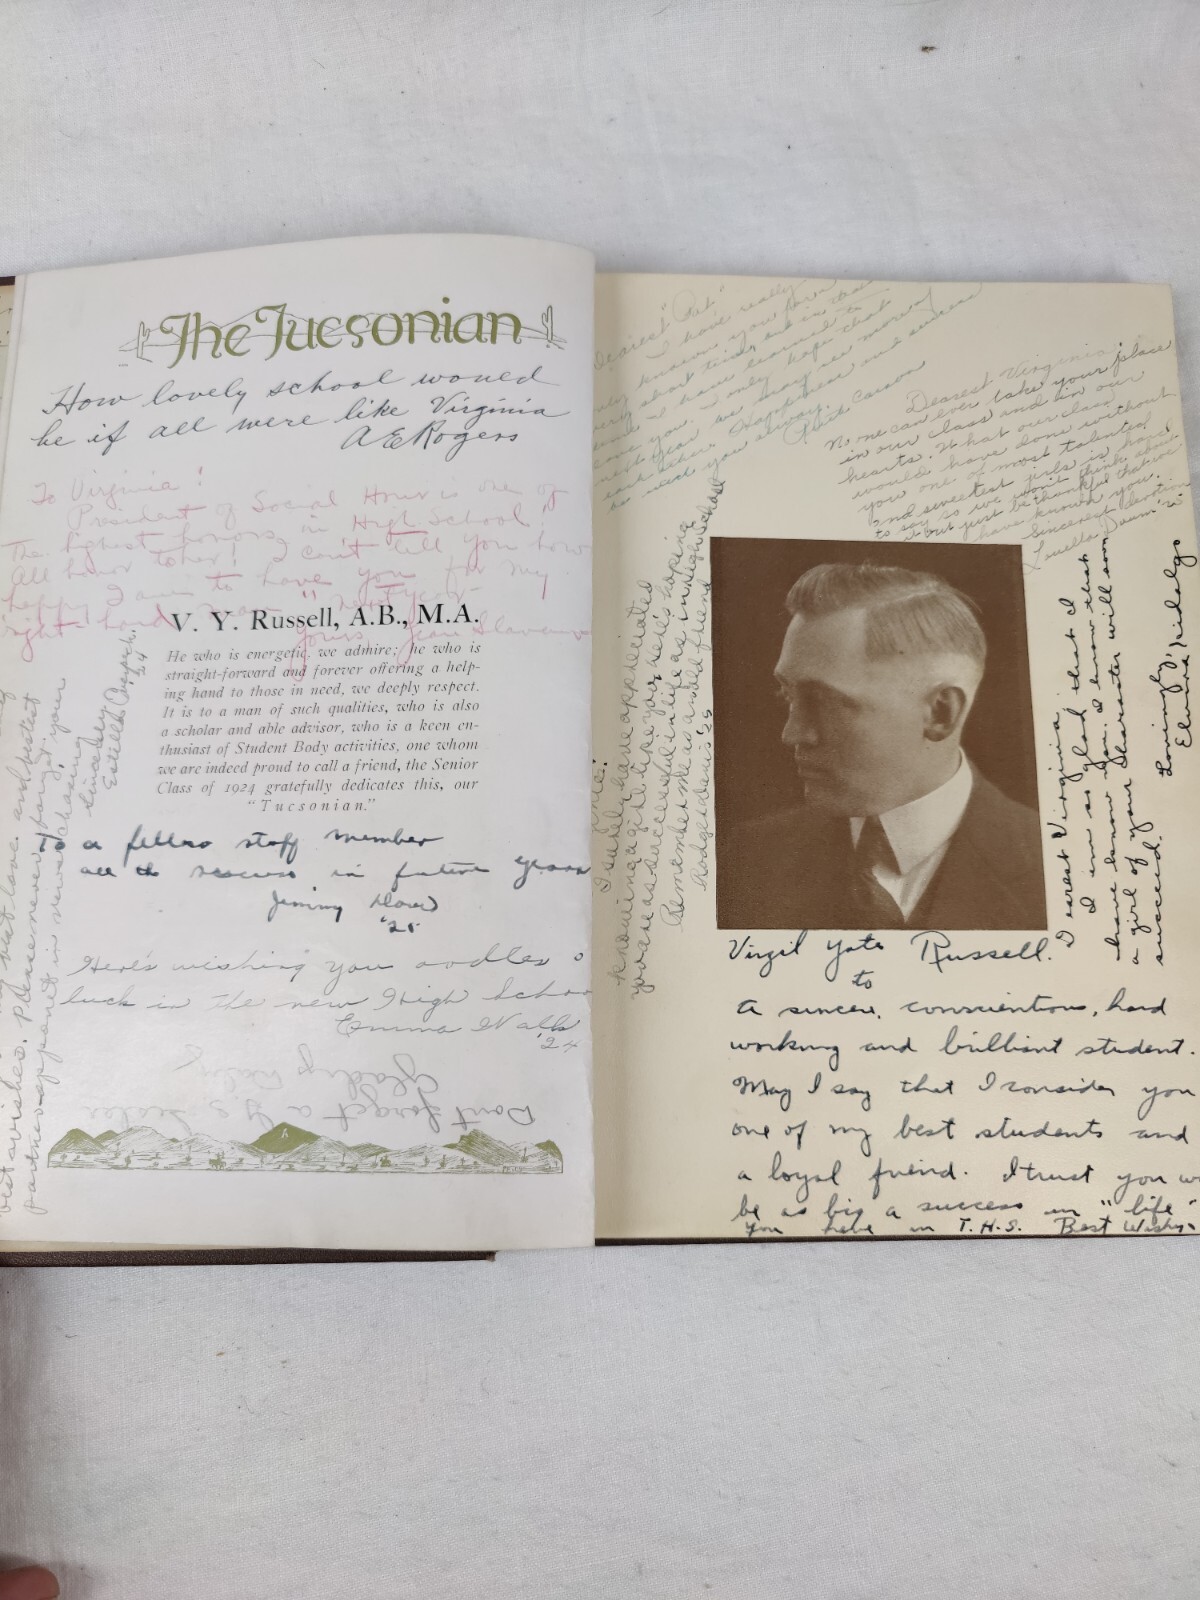 The Tucsonian
How lovely school would
be if all were like Virginia
A E Rogers
To Virginia!
President of Social Hour is one of
The highest honors in High School!
All honor to her! I can't tell you how
happy I am to have you for my
right-hand man
yours Jean
V. Y. Russell, A.B., M.A.
He who is energetic, we admire; he who is
straight-forward and forever offering a help-
ing hand to those in need, we deeply respect.
It is to a man of such qualities, who is also
a scholar and able advisor, who is a keen en-
thusiast of Student Body activities, one whom
we are indeed proud to call a friend, the Senior
Class of 1924 gratefully dedicates this, our
"Tucsonian."
Sincerely
Estelle
'24
best wishes. Please never forget your
partner
To a fellow staff member
all the success in future years
Jimmy
'25
Here's wishing you oodles o
luck in the new High Schoo
Emma
'24
Don't forget a
Gladys
Dearest "Pat"
I have really
known you
very short time, but in that
time I have learned to
love you. I only hope that
next year we may see more of
each other. Happiness and success
be with you always.
Ruth Carson
Dearest Virginia:
No one can ever take your place
in our class and in our
hearts. What our class
would have done without
you one of most talented
and sweetest girls is hard
to say so we won't think about
it but just be thankful that we
have known you.
Sincerest devotion
Luella
I surely have appreciated
knowing a girl like you, here's hoping
you are as successful in life as in High School
Remember me as an old friend
Rodger Davis '25
Dearest Virginia,
I am so glad that I
have know you. I know that
a girl of your character will soon
succeed.
Lovingly,
Elmira Hidalgo
Virgil Yate Russell.
to
A sincere, conscientious, hard
working and brilliant student.
May I say that I consider you
one of my best students and
a loyal friend. I trust you w
be as big a success in "life"
you have in T.H.S. Best Wishes